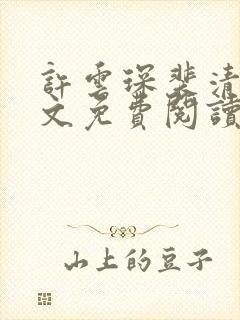 許雲琛裴清
文免費閱讀
山上的豆子